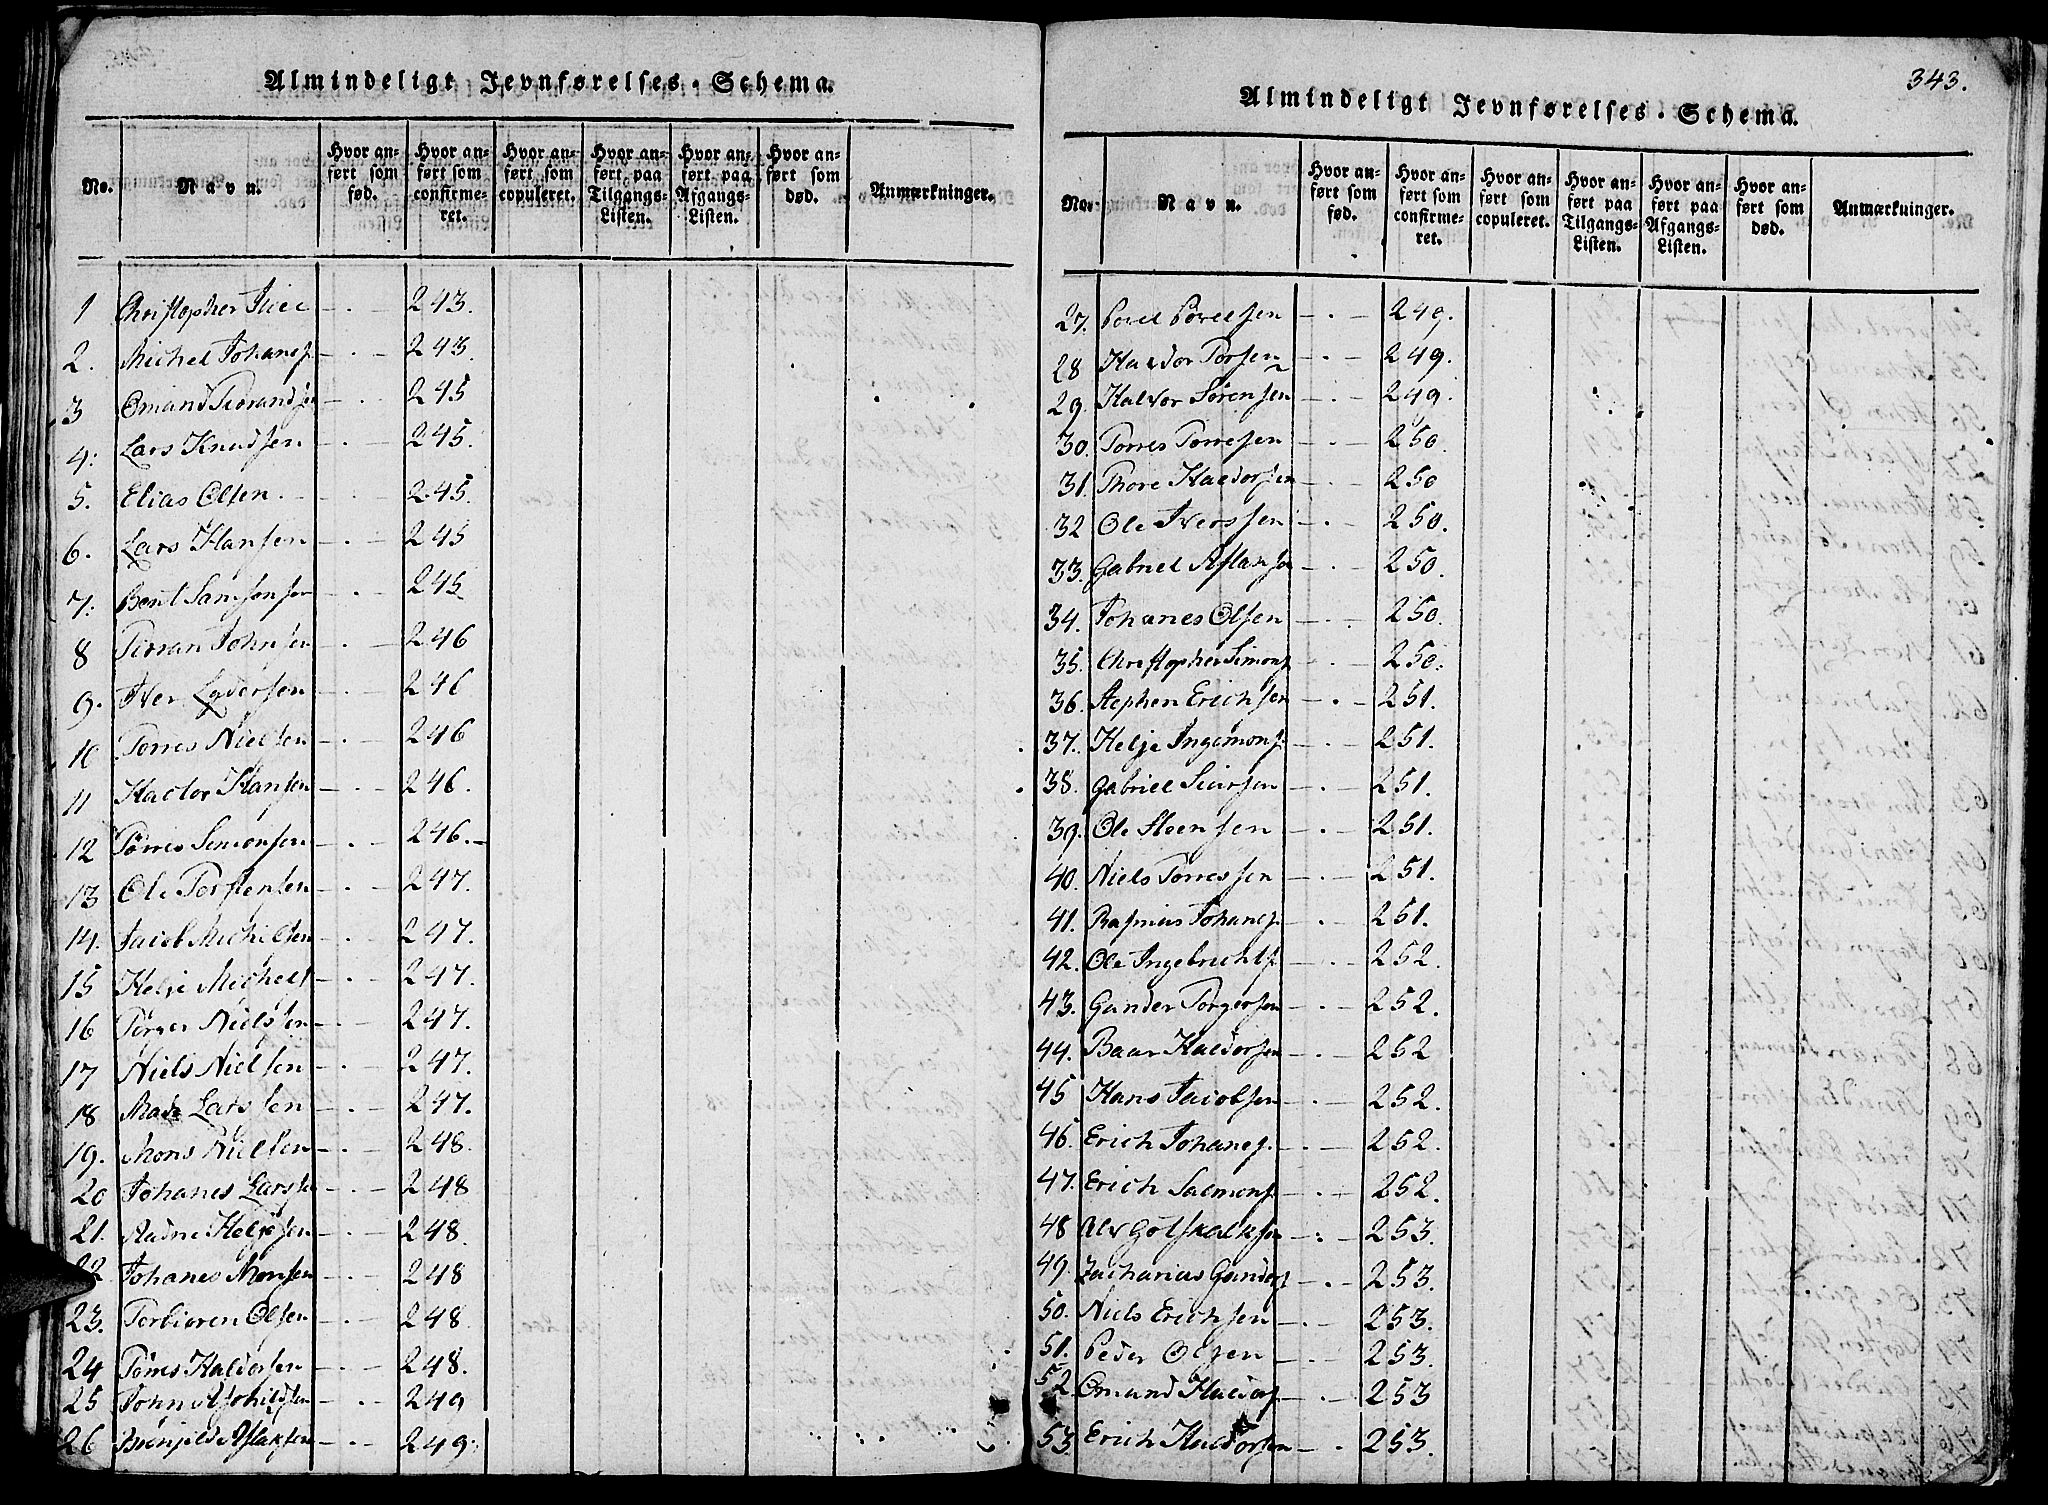 Almindeligt Jevnførelses-Schema.
No. Navn. Hvor anført som fød. Hvor anført som confirmeret. Hvor anført som copuleret. Hvor anført paa Tilgangs-Listen. Hvor anført paa Afgangs-Listen. Hvor anført som død. Anmærkninger.
1 Christopher — . — 243.
2. Michel Johanes — . — 243.
3 Omund — . — 245
4. Lars Knudsen — . — 245.
5. Elias Olsen — . — 245.
6. Lars Hansen — . — 245
7. Bent Samsonsen — . — 245
8 Johnsen — . — 246
9. Iver — . — 246
10 Torres Nielsen — . — 246
11 Haldor Hansen — . — 246.
12 Tørres Simonsen — . — 246.—
13 Ole Torstensen — . — 247.
14. Jacob Michelsen — . — 247.
15 Helje Michels — . — 247.
16 Tørger Nielssen — . — 247.
17 Niels Nielsen — . — 247.
18 Mads Larssen — . — 247.
19. Mons Nielsen — . — 248.
20 Johanes Larssen — . — 248
21. Aadne Heljesen — . — 248.
22 Johanes Monsen — . — 248
23. Torbiøren Olsen — . — 248.
24 Tørres Haldorsen — . — 248.
25 John — . — 249
26 Aslaksen — . — 249.
343.
Almindeligt Jevnførelses-Schema.
No. Navn. Hvor anført som fød. Hvor anført som confirmeret. Hvor anført som copuleret. Hvor anført paa Tilgangs-Listen. Hvor anført paa Afgangs-Listen. Hvor anført som død. Anmærkninger.
27. Povel Povelsen — . — 249.
28 Haldor Torsen — . — 249.
29. Halvor Sørensen — . — 249.
30. Torres Torresen — . — 250.
31. Thore Haldorsen — . — 250
32 Ole Iverssen — . — 250.
33. Gabriel Aslaksen — . — 250.
34. Johanes Olsen — . — 250.
35. Christopher Simons — . — 250.
36. Stephen Erichsen — . — 251.
37. Helje Ingemons — . — 251.
38. Gabriel Siursen — . — 251.
39. Ole Steensen — . — 251.
40. Niels Torressen — . — 251.
41. Rasmus Johanes — . — 251.
42. Ole Ingebrichts — . — 252.
43. Gunder Torgersen — . — 252.
44. Baar Haldorsen — . — 252
45 Hans Jacobsen — . — 252.
46. Erich Johanes — . — 252.
47. Erich Salmons — . — 252.
48 Alv Gotskalksen — . — 253.
49. Zacharias Gunders — . — 253.
50. Niels Erichsen — . — 253.
51. Peder Olsen — . — 253.
52. Omund Haldors — . — 253
53. Erich Haldorsen — . — 253.